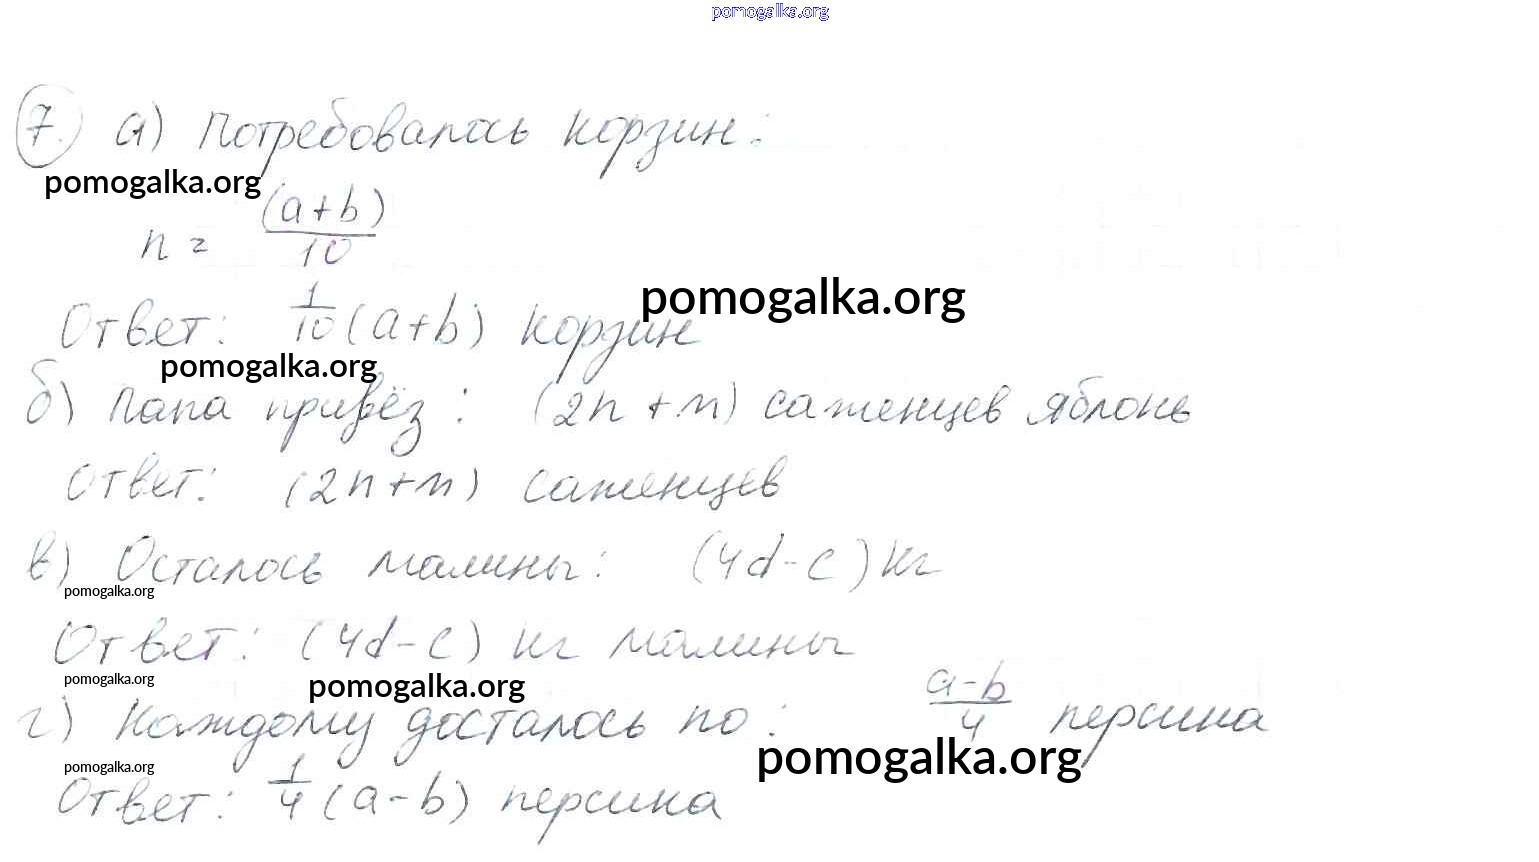 pomogalka.org
7. а) Потребовалось корзин:
pomogalka.org
n = (a+b)/10
pomogalka.org
Ответ: 1/10 (a+b) корзин
pomogalka.org
б) Папа привёз: (2n+m) саженцев яблонь
Ответ: (2n+m) саженцев
в) Осталось малины: (4d-c) кг
pomogalka.org
Ответ: (4d-c) кг малины
pomogalka.org
pomogalka.org
г) Каждому досталось по: (a-b)/4 персика
pomogalka.org
pomogalka.org
Ответ: 1/4 (a-b) персика